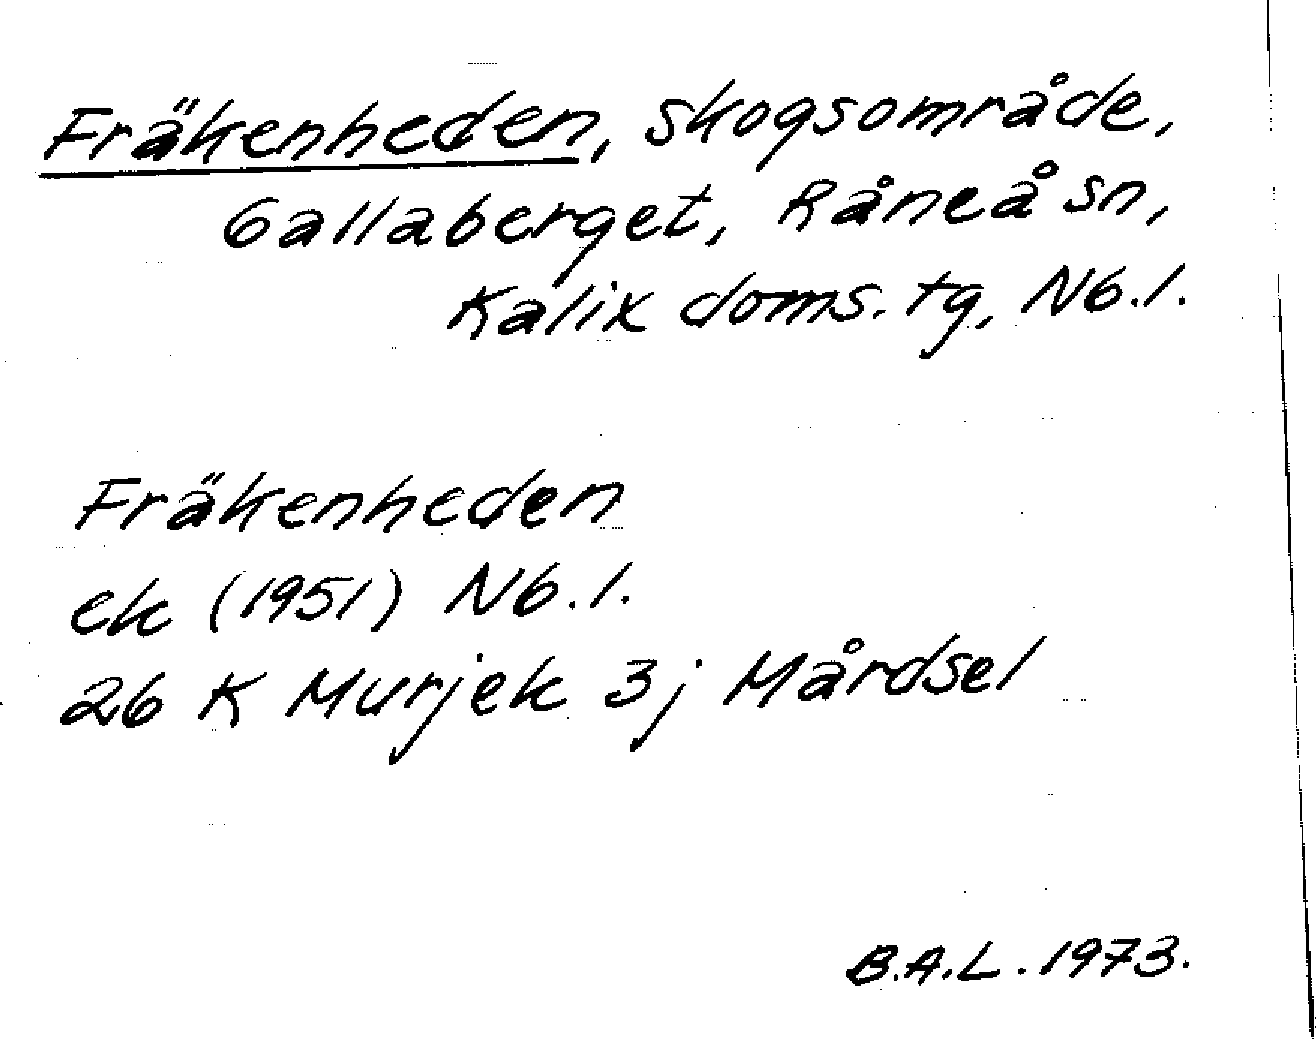 Fräkenheden, skogsområde,
Gallaberget, Råneå sn,
Kalix doms. tg, Nb. l.
Fräkenheden
ek (1951) Nb. l.
26 K Murjek 3 j Mårdsel
B.A.L. 1973.